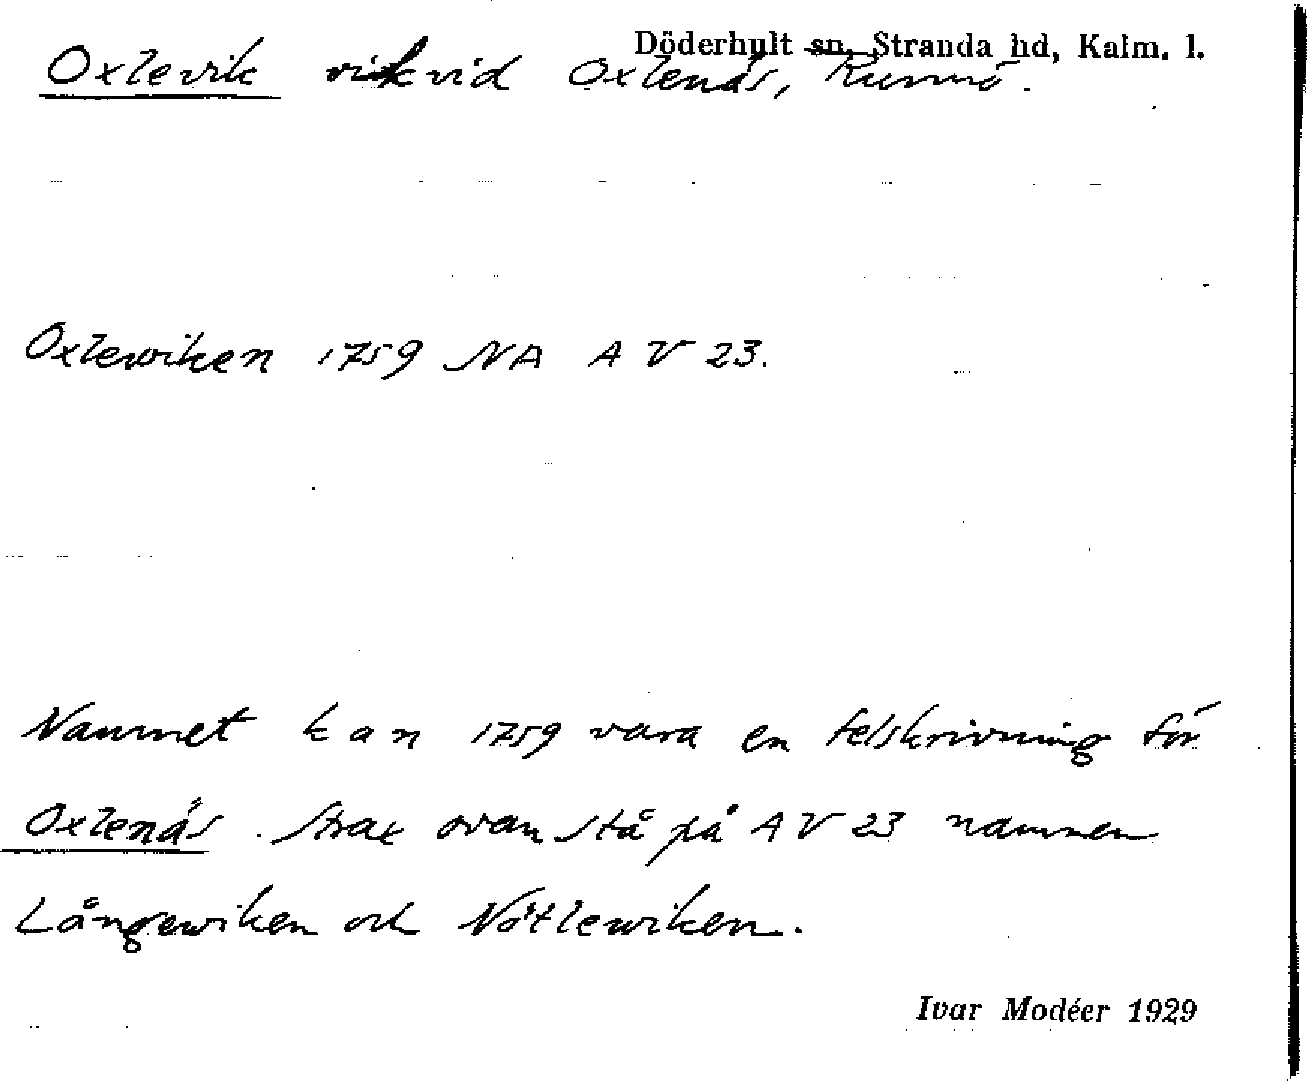 Döderhult sn, Stranda hd, Kalm. l.
Oxlevik vik vid Oxlenäs, Runnö.
Oxlewiken 1759 NA A V 23.
Namnet kan 1759 vara en felskrivning för
Oxlenäs. Strax ovan stå på A V 23 namnen
Långewiken och Nötlewiken.
Ivar Modéer 1929